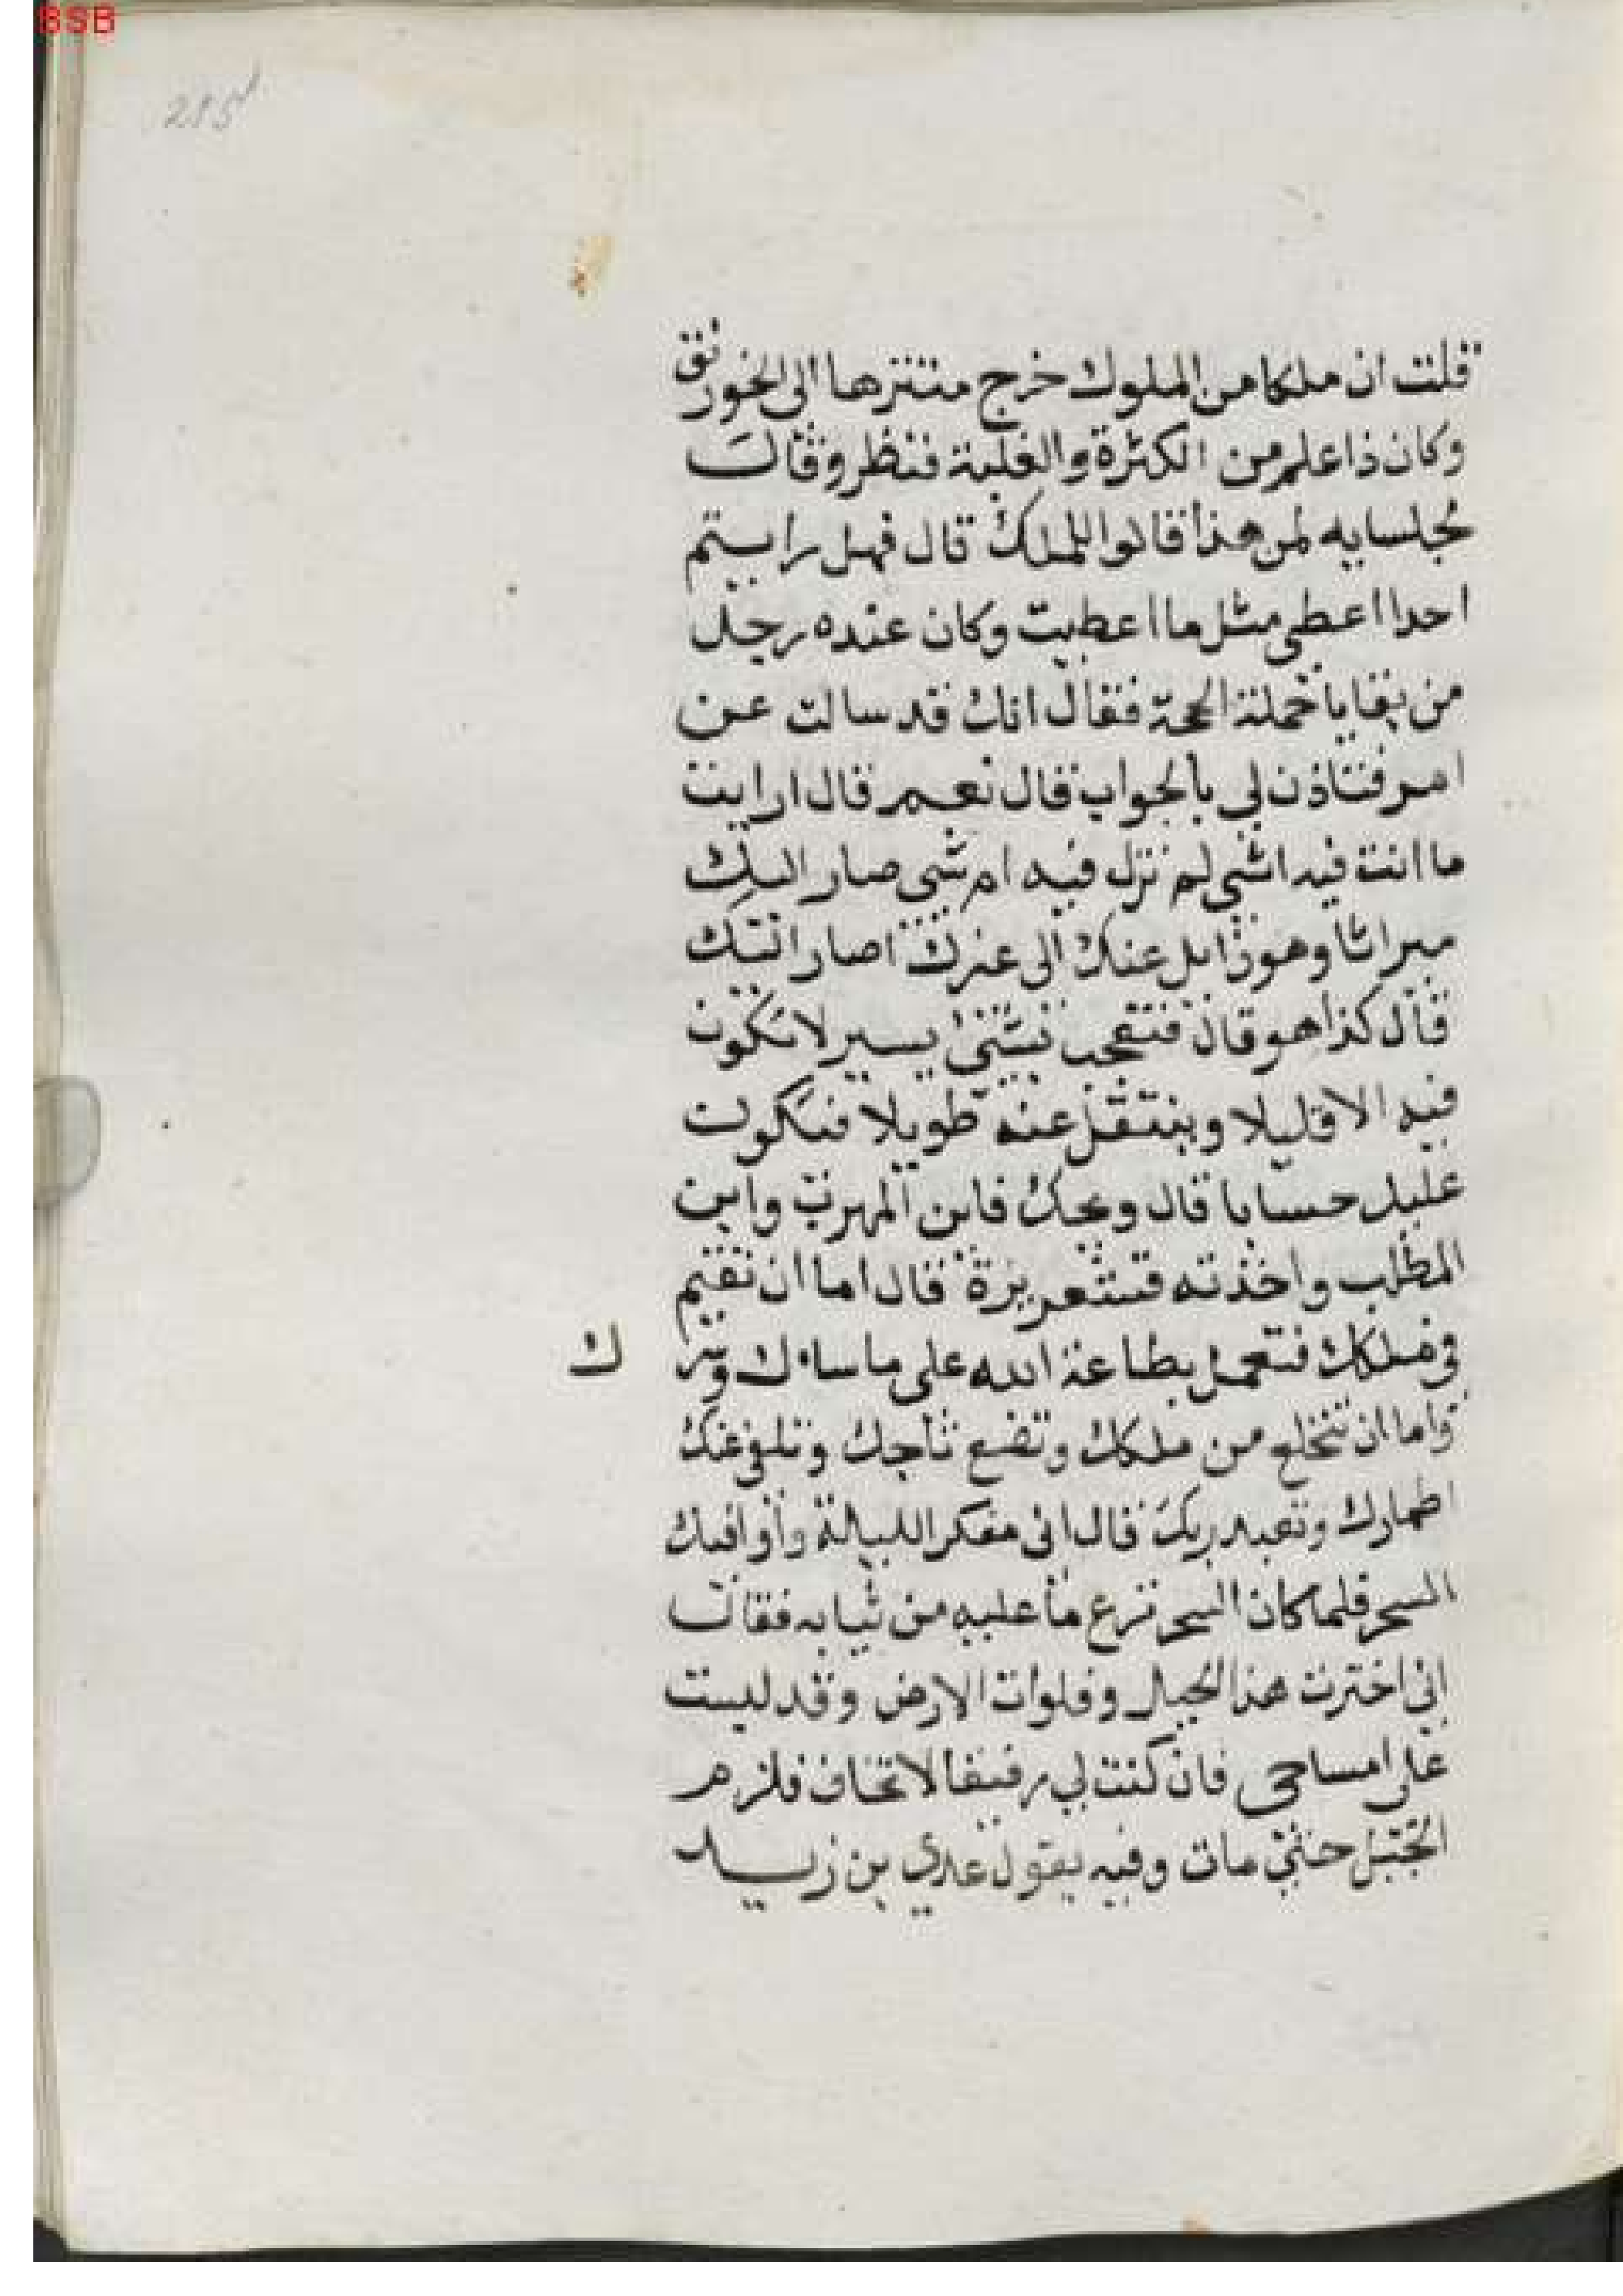 BSB
215
قلت ان ملكا من الملوك خرج متنزها الى الخورنق
وكان ذا علم من الكثرة والغلبة فنظر وقال
لجلسايه لمن هذا قالوا للملك قال فهل رايتم
احدا اعطى مثل ما اعطيت وكان عنده رجل
من بقايا حملة الحجة فقال انك قد سالت عن
امر فتاذن لي بالجواب قال نعم قال ارايت
ما انت فيه اشي لم تزل فيه ام شي صار اليك
ميراثا وهو زايل عنك الى غيرك اصار اليك
قال كذا هو قال فتعجب بشي يسير لا تكون
فيه الا قليلا وينتقل عنه طويلا فتكون
عليك حسابا قال ويحك فاين المهرب واين
المطلب واخذته قشعريرة قال اما ان تقيم
في ملكك فتعمل بطاعة الله على ما ساءك وسر ك
واما ان تنخلع من ملكك وتضع تاجك وتلقي عنك
اطمارك وتعبد ربك قال اني مفكر الليلة واوافيك
السحر فلما كان السحر نزع ما عليه من ثيابه فقال
اني اخترت هذا الجبال وفلوات الارض وقد لبست
على امساحي فان كنت لي رفيقا لا تخاف فلزم
الجبل حتى مات وفيه يقول عدي بن زيد